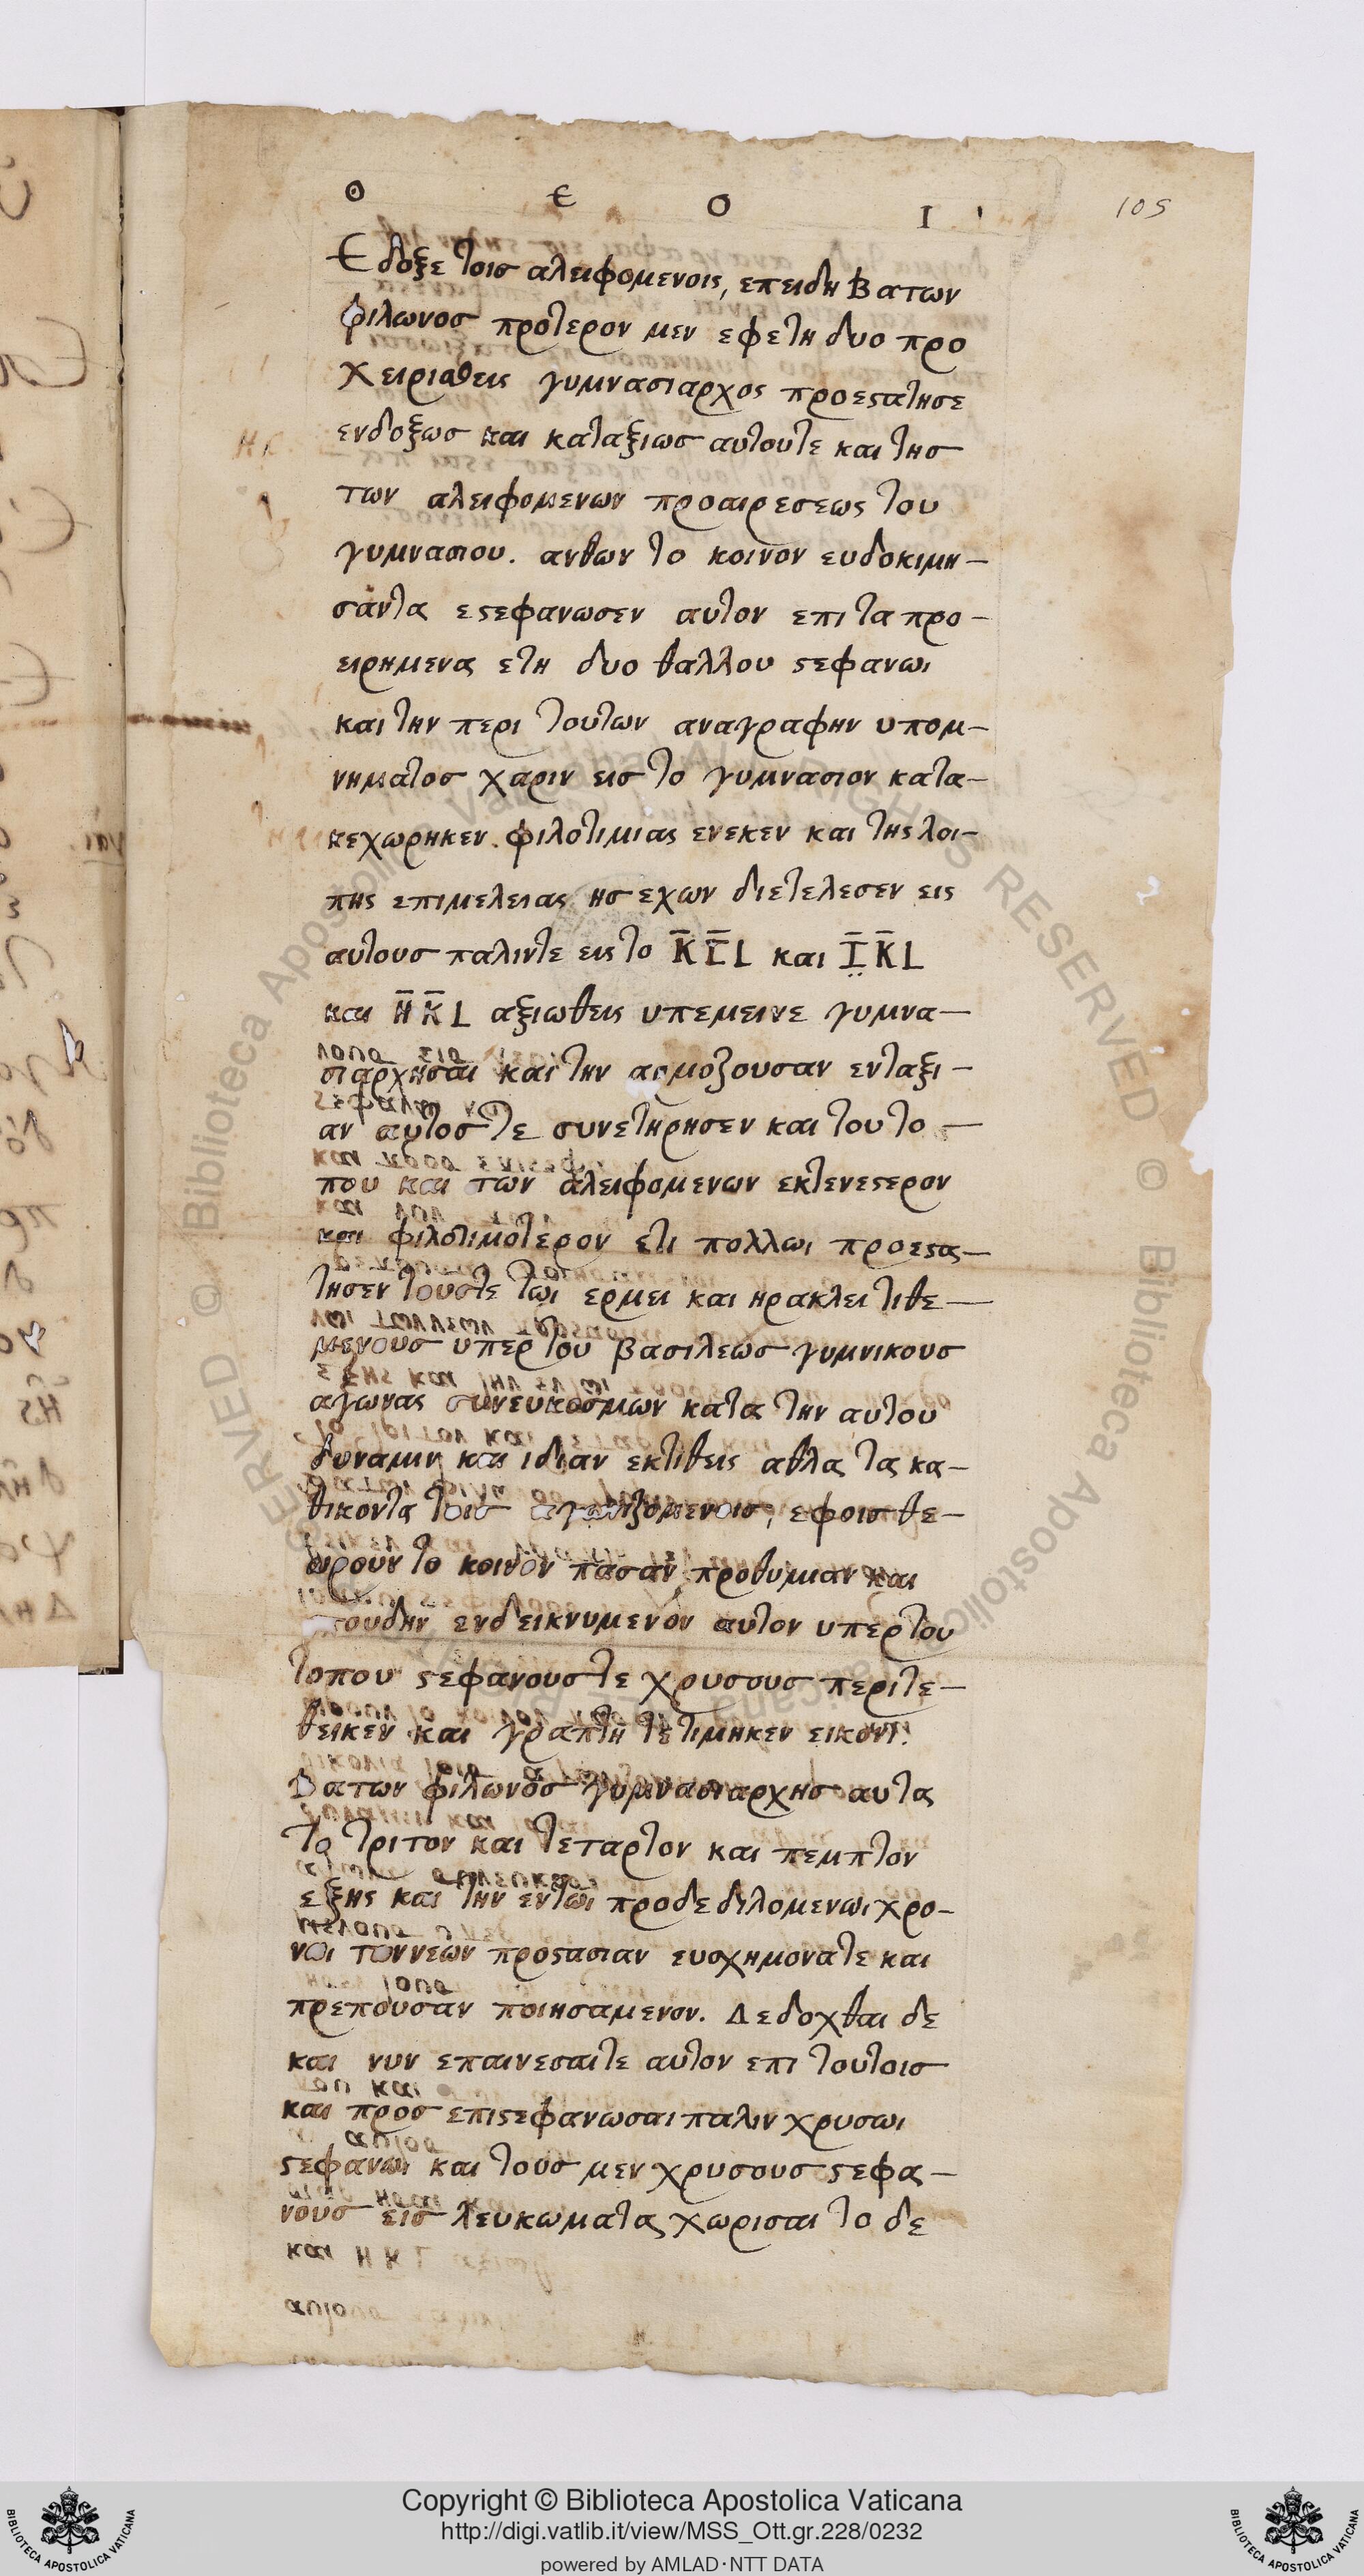 Θ Ε Ο Ι
105
Εδοξε τοισ αλειφομενοις, επειδη Βατων
φιλωνοσ προτερον μεν εφετη δυο προ
χειρισθεις γυμνασιαρχος προεϛατησε
ενδοξωσ και καταξιωσ αυτουτε και τησ
των αλειφομενων προαιρεσεως του
γυμνασιου. ανθων το κοινον ευδοκιμη—
σαντα εϛεφανωσεν αυτον επι τα προ—
ειρημενα ετη δυο θαλλου ϛεφανωι
και την περι τουτων αναγραφην υπομ—
νηματοσ χαριν εισ το γυμνασιον κατα—
κεχωρηκεν. φιλοτιμιας ενεκεν και της λοι—
πης επιμελειας ησ εχων διετελεσεν εις
αυτουσ παλιντε εις το Κ̅Ϛ̅L και Ι̅Κ̅L
και Η̅Κ̅L αξιωθεις υπεμεινε γυμνα—
σιαρχησαι και την αρμοζουσαν ενταξι—
αν αυτοσ τε συνετηρησεν και του το—
που και των αλειφομενων εκτενεϛερον
και φιλοτιμοτερον ετι πολλωι προεϛα—
τησεν τουστε τωι ερμει και ηρακλει τιθε—
μενουσ υπερ του βασιλεωσ γυμνικουσ
αγωνας συνευκοσμων κατα την αυτου
δυναμιν και ιδιαν εκτιθεις αθλα τα κα—
θικοντα τοισ αγωνιζομενοισ, εφοισ θε—
ωρουν το κοινον πασαν προθυμιαν και
πουδην ενδεικνυμενον αυτον υπερ του
τοπου ϛεφανουστε χρυσουσ περιτε—
θεικεν και γραπτη τετιμηκεν εικονι.
Βατων φιλωνοσ γυμνασιαρχησ αυτα
το τριτον και τεταρτον και πεμπτον
εξης και την εντωι προδεδηλομενωι χρο—
νωι των νεων προϛασιαν ευσχημονατε και
πρεπουσαν ποιησαμενον. Δεδοχθαι δε
και νυν επαινεσαιτε αυτον επι τουτοισ
και προσ επιϛεφανωσαι παλιν χρυσωι
ϛεφανωι και τουσ μεν χρυσουσ ϛεφα—
νουσ εισ λευκωματα χωρισαι το δε
Copyright © Biblioteca Apostolica Vaticana
http://digi.vatlib.it/view/MSS_Ott.gr.228/0232
powered by AMLAD·NTT DATA